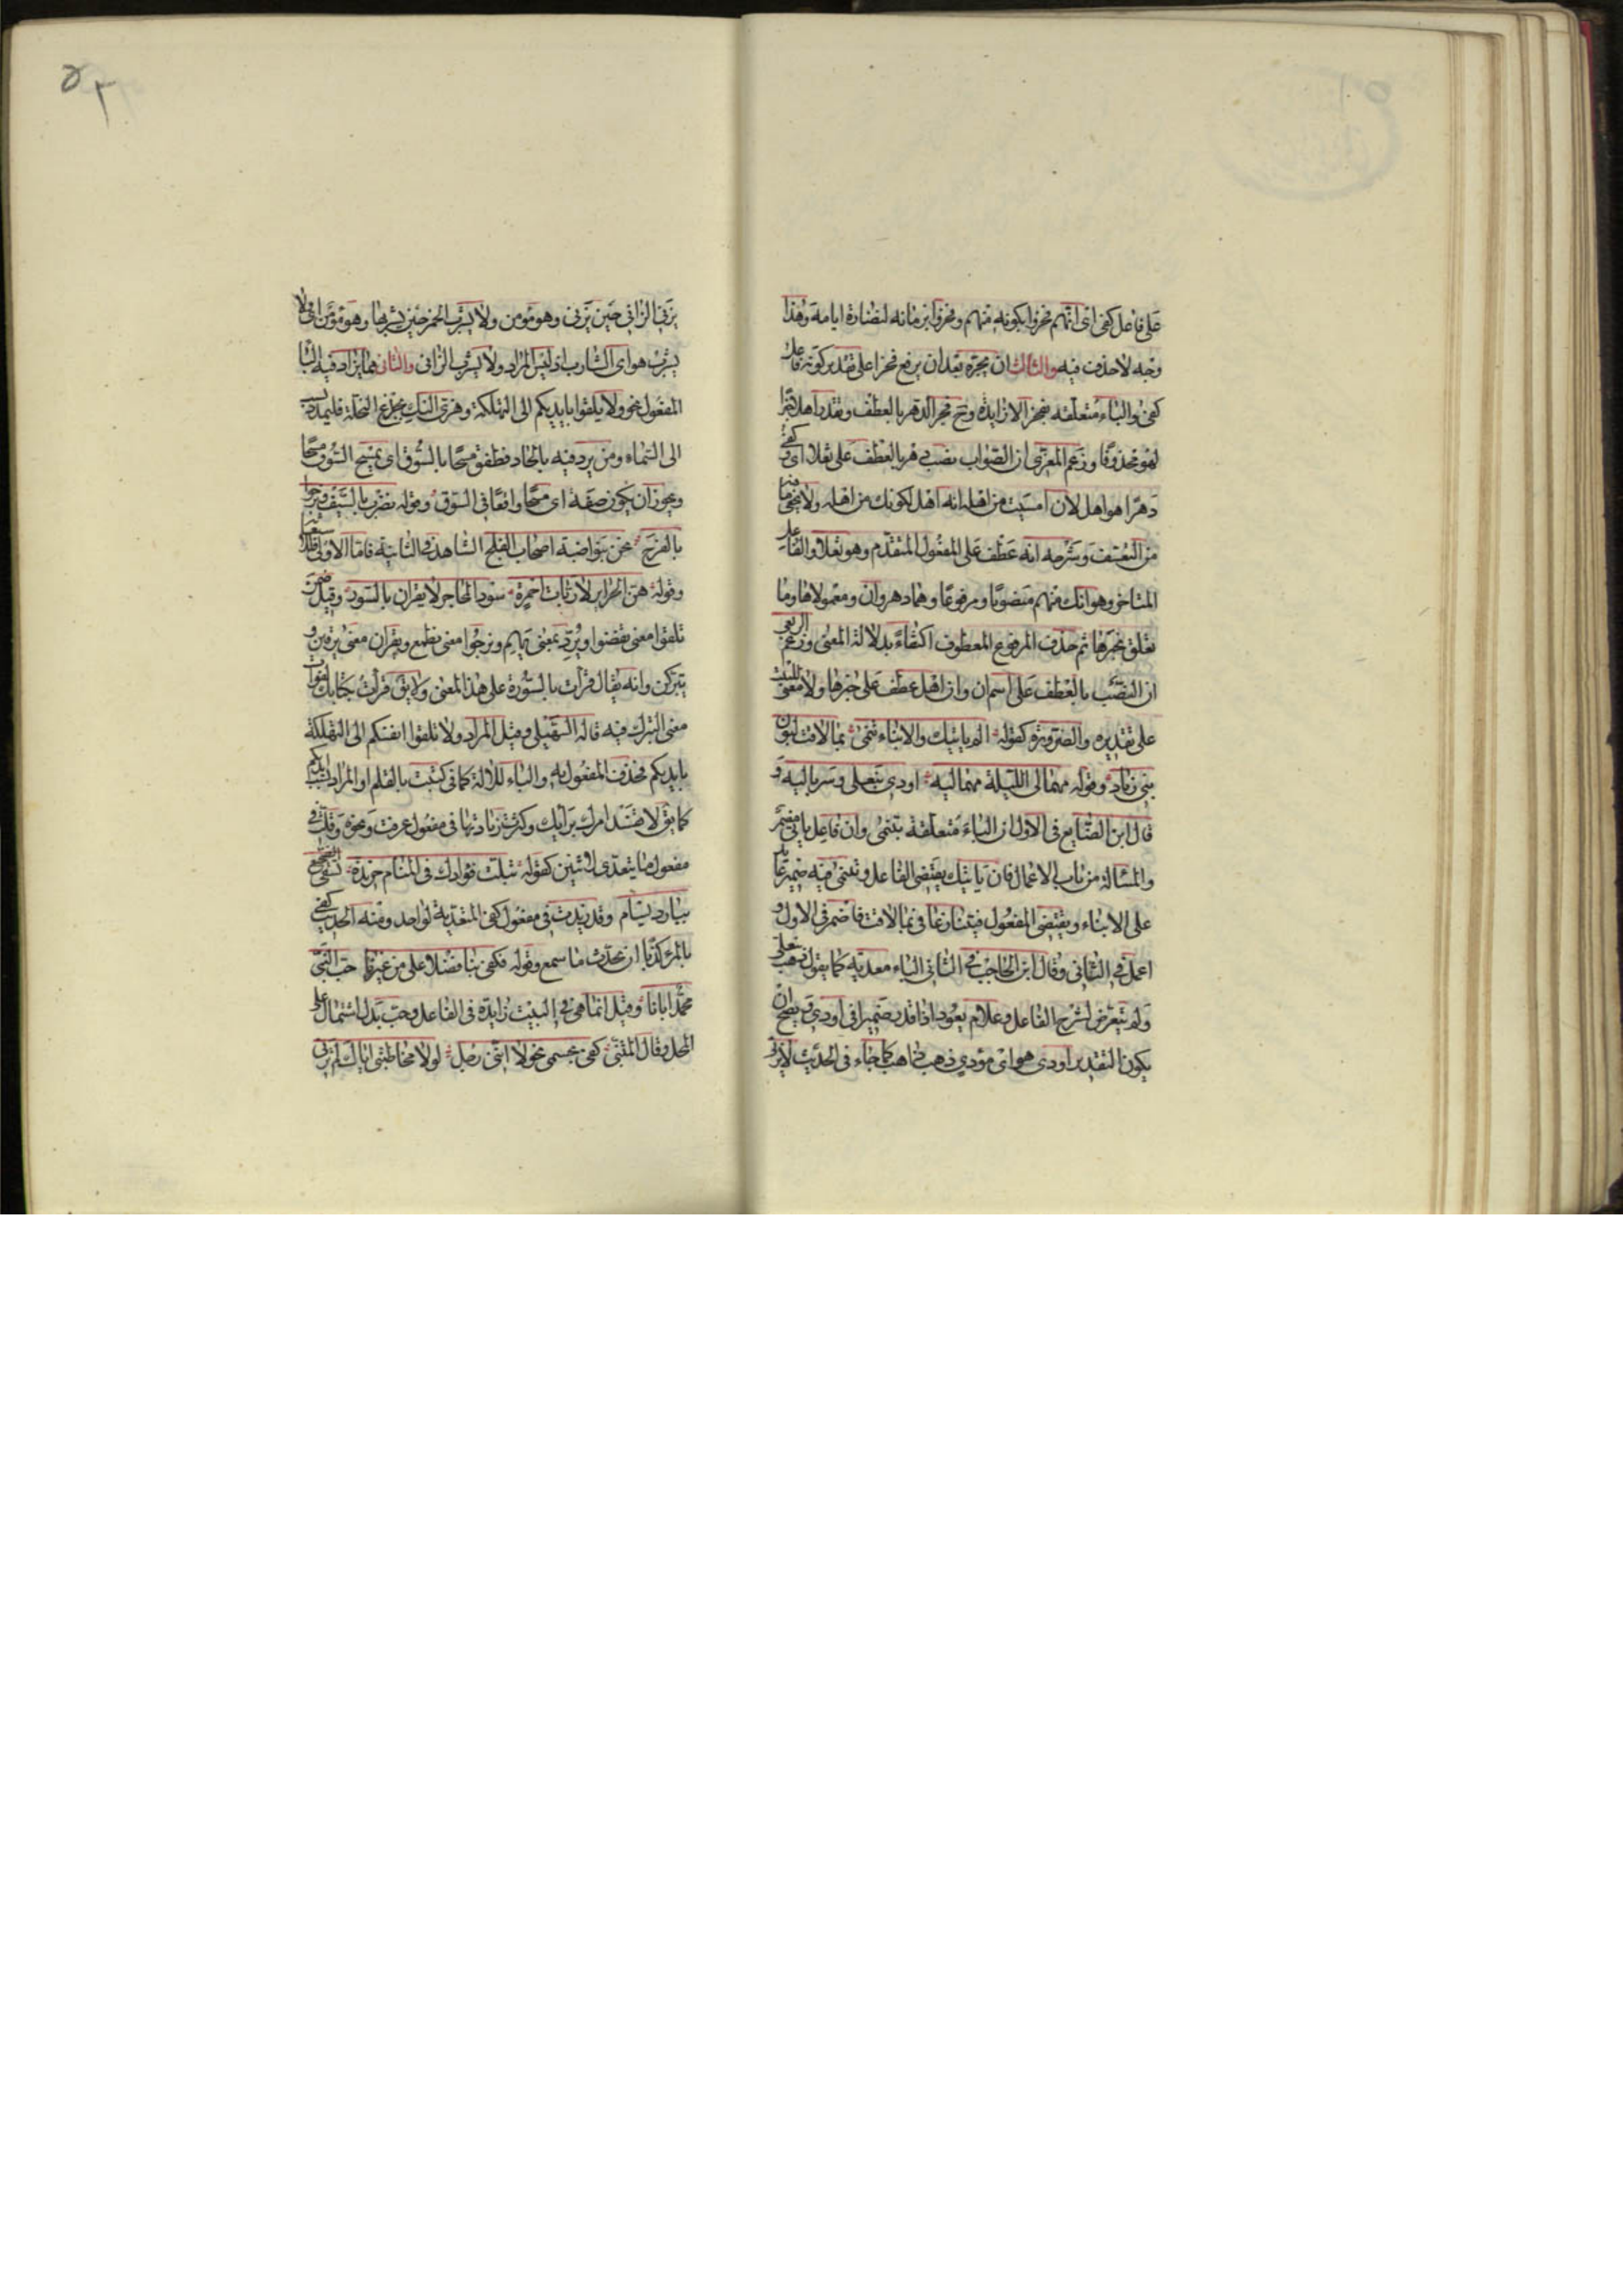 على فاعل كفى اى انهم فخروا بكونه منهم وفخروا بزمانه لنضارة ايامه وهذا
وجه لا حذف فيه والثالث ان تجره بعد ان يرفع فخرا على تقدير كونه فاعل
كفى والباء متعلقه بفخر لا زايدة وح فجر الدهر بالعطف وتقدر اهل خبرا
لهو محذوفا وزعم المعرى ان الصواب نصب دهر بالعطف على ثعلا اى وكفى
دهرا هو اهل لان امسيت من اهله انه اهل لكونك من اهله ولا يخفى ما فيه
من التعسف وشرحه انه عطف على المفعول المتقدم وهو ثعلا والفاعل
المتاخر وهو انك منهم منصوبا ومرفوعا وهما دهر وان ومعمولاها وما
تعلق بخبرها ثم حذف المرفوع المعطوف اكتفاء بدلالة المعنى وزعم الربعى
ان النصب بالعطف على اسم ان وان اهل عطف على خبرها ولا معنى للبيت
على تقديره والضرورة كقوله الم ياتيك والانباء تنمى بما لاقت لبون
بنى زياد وقوله مهما لى الليلة مهما ليه اودى بنعلى وسرباليه و
قال ابن الضايع فى الاول ان الباء متعلقة بتنمى وان فاعل ياتى مضمر
والمسالة من باب الاعمال فان ياتيك يقتضى الفاعل وتنمى فيه ضمير عايد
على الانباء ويقتضى المفعول فيتنازعا فى بما لاقت فاضمر فى الاول و
اعمل فى الثانى وقال ابن الحاجب فى الثانى الباء معدية كما يقول ذهب بنعلى
ولم يتعرض لشرح الفاعل وعلام يعود اذا قدر ضميرا فى اودى ويصح ان
يكون التقدير اودى هو اى مؤدى ذهب ذاهب كما جاء فى الحديث لا يزنى
٥٢
يزنى الزانى حين يزنى وهو مؤمن ولا يشرب الخمر حين يشربها وهو مؤمن اى لا
يشرب هو اى الشارب اذ ليس المراد ولا يشرب الزانى والثانى مما يزاد فيه الباء
المفعول نحو ولا تلقوا بايديكم الى التهلكة وهزى اليك بجذع النخلة فليمدد بسبب
الى السماء ومن يرد فيه بالحاد فطفق مسحا بالسوق اى يمسح السوق مسحا
ويجوز ان يكون صفة اى مسحا واقعا فى السوق وقوله نضرب بالسيف ونرجوا
بالفرج نحن بنو ضبة اصحاب الفلج الشاهد فى الثانية فاما الاولى فللاستعانة
وقوله هن الحراير لا ربات احمرة سود المحاجر لا يقران بالسور وقيل ضمن
تلقوا معنى تفضوا ويرد بمعنى يهم ونرجوا معنى نطمع ويقران معنى يرقين و
يتبركن وانه يقال قرات بالسورة على هذا المعنى ولا يق قرات بكتابك لفوات
معنى التبرك فيه قاله السهيلى وقيل المراد ولا تلقوا انفسكم الى التهلكة
بايديكم فحذف المفعول به والباء للالة كما فى كتبت بالقلم او المراد بسبب ايديكم
كما يق لا تفسد امرك برايك وكثرت زيادتها فى مفعول عرفت ونحوه وقلت فى
مفعول ما يتعدى لاثنين كقوله تبلت فؤادك فى المنام خريدة تسقى الضجيع
ببارد بسام وقد زيدت فى مفعول كفى المتعدية لواحد ومنه الحديث كفى
بالمرء كذبا ان يحدث بما سمع وقوله فكفى بنا فضلا على من غيرنا حب النبى
محمد ايانا وقيل انما هى فى البيت زايدة فى الفاعل وحب بدل اشتمال على
المحل وقال المتنبى كفى بجسمى نحولا اننى رجل لولا مخاطبتى اياك لم ترنى